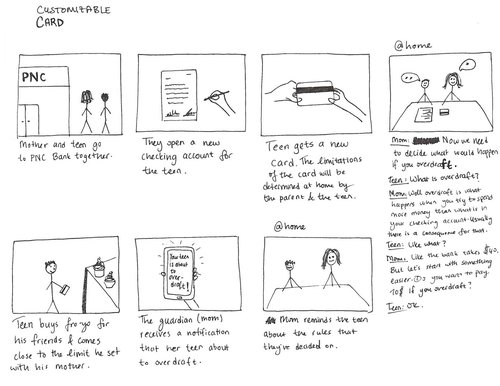 CUSTOMIZABLE
CARD
PNC
Mother and teen go
to PNC Bank together.
They open a new
checking account for
the teen.
Teen gets a new
card. The limitations
of the card will be
determined at home by
the parent & the teen.
@home
Mom: Now we need
to decide what would happen
if you overdraft.
Teen: What is overdraft?
Mom: Well overdraft is what
happens when you try to spend
more money than what is in
your checking account. Usually
there is a consequence for that.
Teen: Like what?
Mom: Like the bank takes $40.
But let's start with something
easier. you want to pay
10$ if you overdraft?
Teen: OK.
Teen buys fro-yo for
his friends & comes
close to the limit he set
with his mother.
Your teen
is about
to over-
draft!
The guardian (mom)
receives a notification
that her teen about
to overdraft.
@home
Mom reminds the teen
about the rules that
they've decided on.